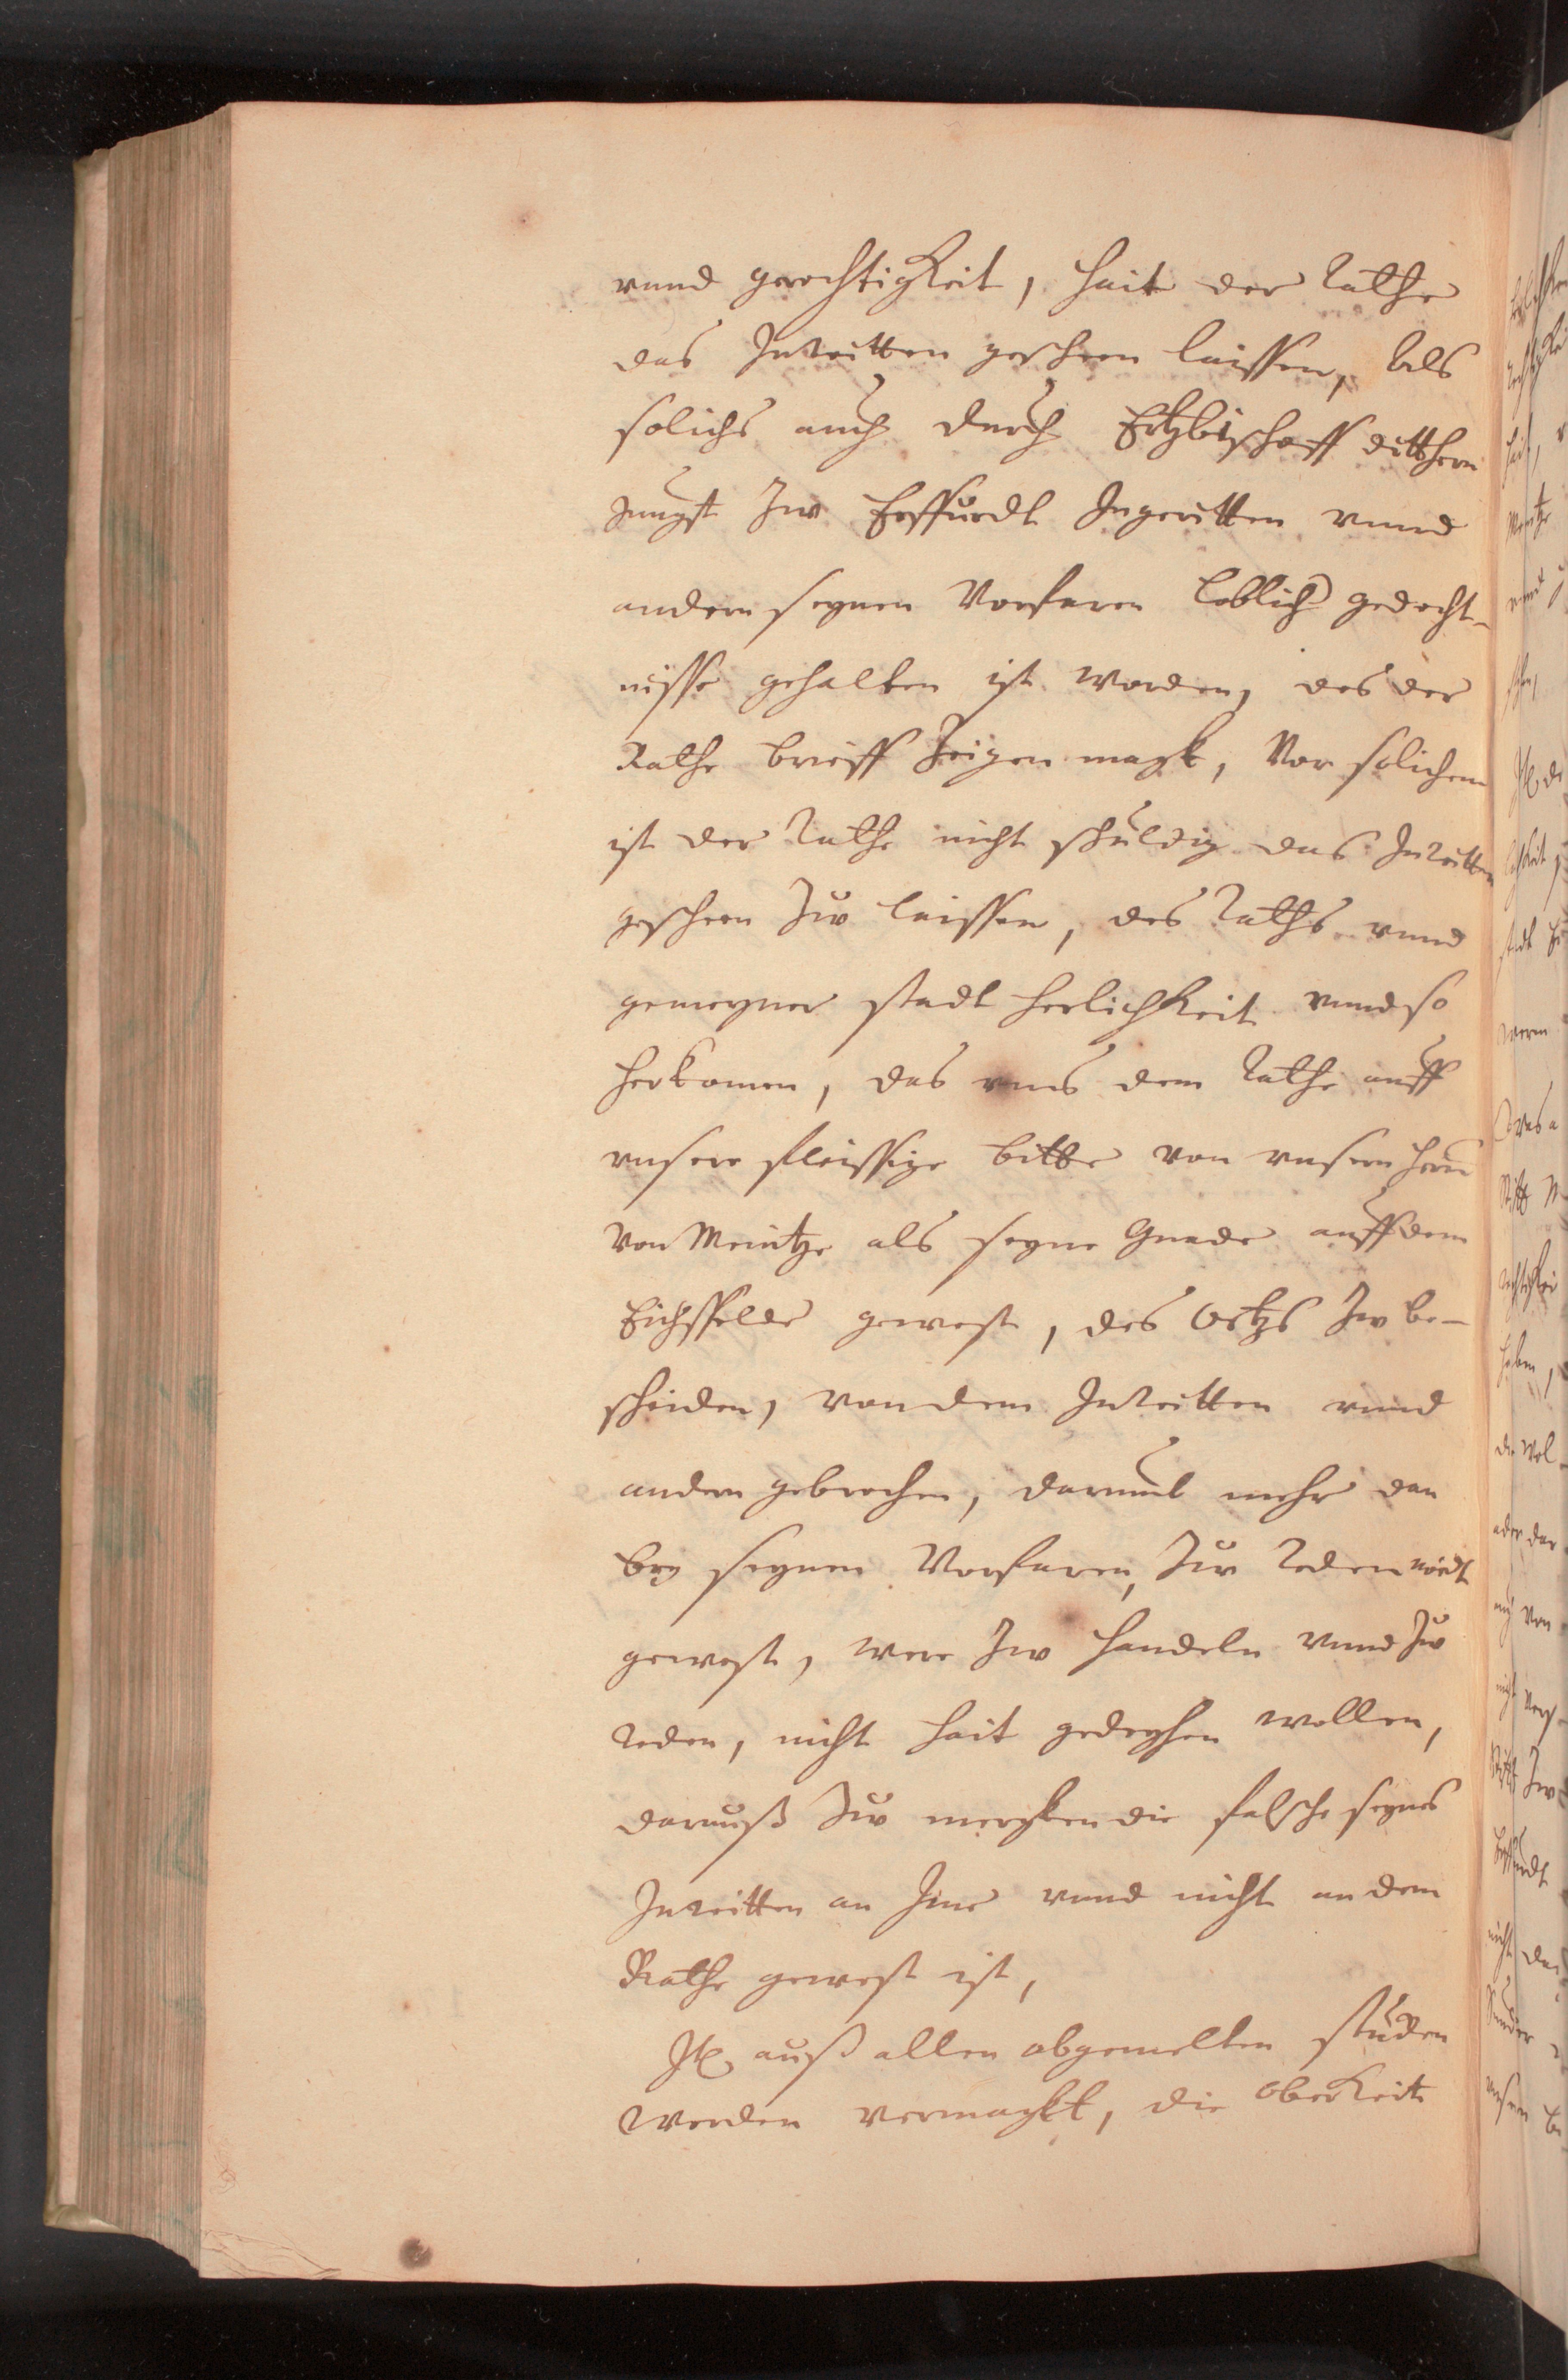 vnnd gerechtigkeit, hait der Rathe
das Inreitten gescheen laissen, Als
solichs auch durch Ertzbischoff ditthern
Jungst Zw Erffurdt Ingeritten vnnd
andern seynen Vorfaren loblich gedecht-
nisse gehalten ist worden, des der
Rathe brieff Zeigen magk, Vor solichem
ist der Rathe nicht schuldig das Inreitten
gescheen Zw laissen, des Raths vnnd
gemeyner stadt herlichkeit vnnd so
herkomen, das vns dem Rathe auff
vnsere fleissige bitte von vnsern hern
von Meintze als seyne Gnade auff dem
Eichsffelde gewest, des Ortzs Zw be-
scheiden, von dem Inreitten vnnd
andern gebrechen, darumb mehr dan
bey seynen Vorfaren, Zw Reden nodt
gewest, were Zw handeln vnnd Zw
Reden, nicht hait gedeyhen wollen,
darauß Zw mercken die falsche seynes
Inreitten an Ime vnnd nicht an dem
Rathe gewest ist,
It auß allen obgemelten stucken
werden vermarckt, die Oberkeit